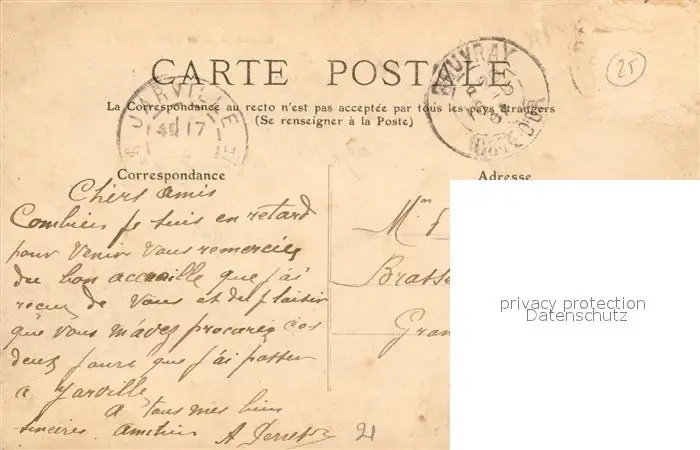 CARTE POSTALE
La Correspondance au recto n'est pas acceptée par tous les pays étrangers
(Se renseigner à la Poste)
JARVILLE
17
BEUVRAY
25
Correspondance
Adresse
Chers amis
Combien je suis en retard
pour venir vous remercier
du bon accueille que j'ai
reçu de Vous et du plaisir
que vous m'avez procurer ces
deux jours que j'ai passer
a Jarville
A tous mes bien
sinceres amitiés
21
Brasse
Gran
privacy protection
Datenschutz